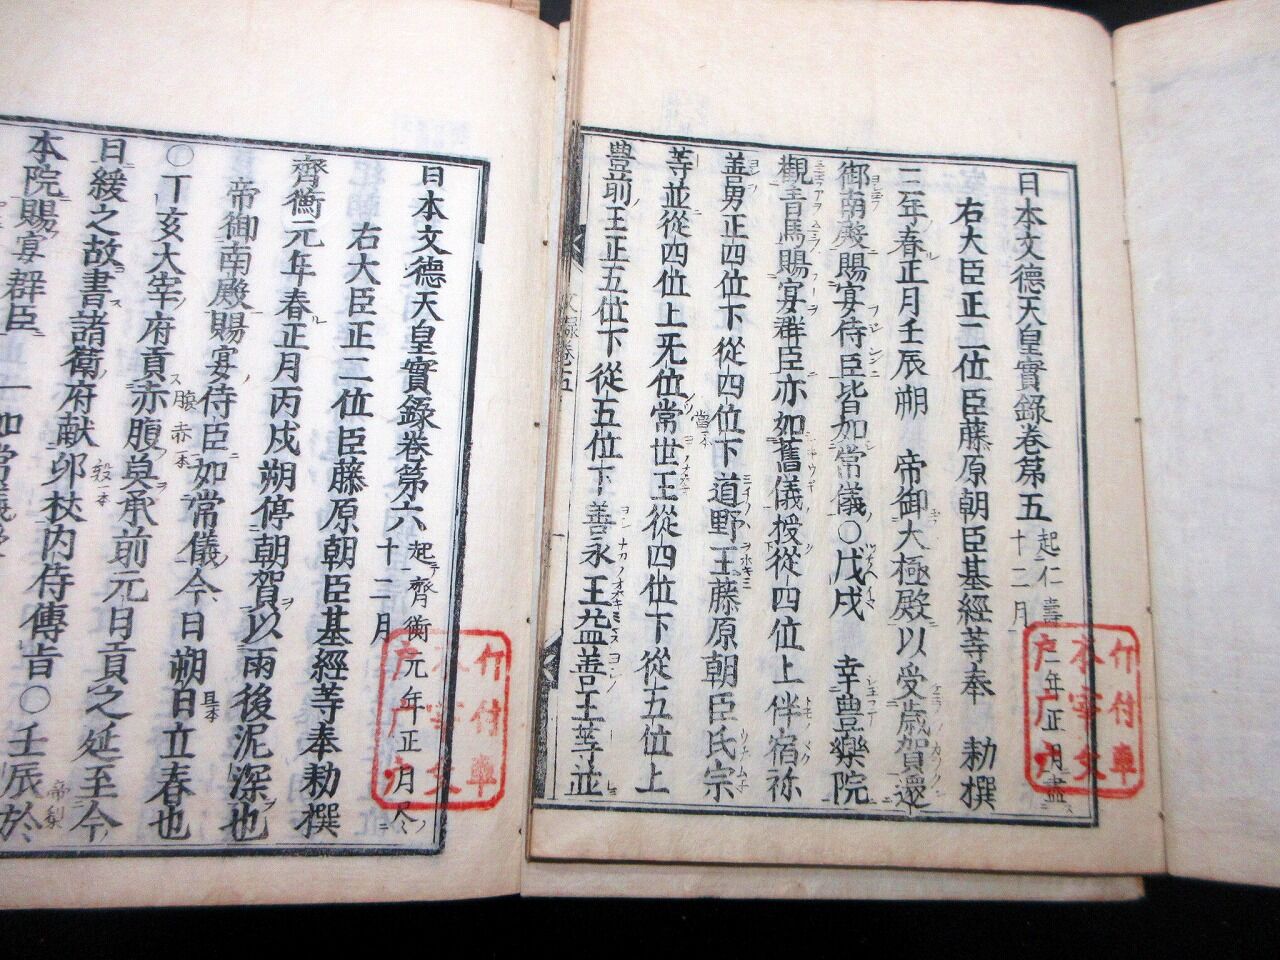 日本文德天皇實錄卷第五 起仁壽三年正月盡十二月
右大臣正二位臣藤原朝臣基經等奉 勅撰
三年春正月壬辰朔 帝御大極殿以受歲賀還
御南殿賜宴侍臣皆如常儀〇戊戌 幸豊樂院
觀青馬賜宴群臣亦如舊儀授從四位上伴宿祢
善男正四位下從四位下道野王藤原朝臣氏宗
等並從四位上无位常世王從四位下從五位上
豊前王正五位下從五位下善永王益善王等並
日本文德天皇實錄卷第六 起齊衡元年正月尽十二月
右大臣正二位臣藤原朝臣基經等奉勅撰
齊衡元年春正月丙戍朔停朝賀以雨後泥深也
帝御南殿賜宴侍臣如常儀今日朔日立春也
〇丁亥大宰府貢赤腹奠承前元日貢之延至今
日緩之故書諸衛府献卯杖内侍傳旨〇壬辰於
本院賜宴群臣一如常儀